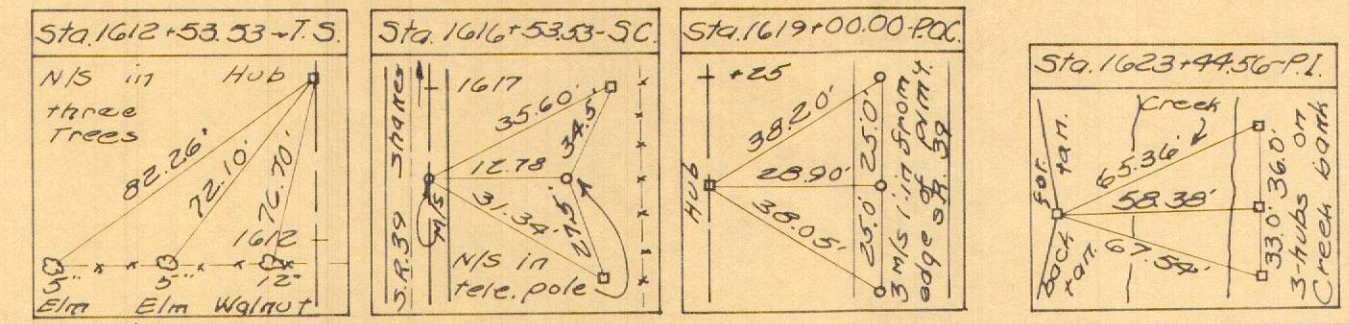 Sta. 1612+53.53-T.S.
N/S in Hub
three
Trees
82.26'
72.10'
76.70'
1612
5" 5" 12"
Elm Elm Walnut
Sta. 1616+53.53-S.C.
S.R.39
M/S
1617
35.60'
34.5
12.78
31.34'
27.5'
N/S in
tele. pole
Sta. 1619+00.00-P.O.C.
+25
Hub
38.20'
28.90'
38.05'
25.0' 25.0'
3 M/S 1' in from
edge of pvm't.
S.R. 39
Sta. 1623+44.56-P.I.
for. tan.
back tan.
Creek
65.36'
58.38'
67.54'
33.0' 36.0'
3-hubs on
Creek bank